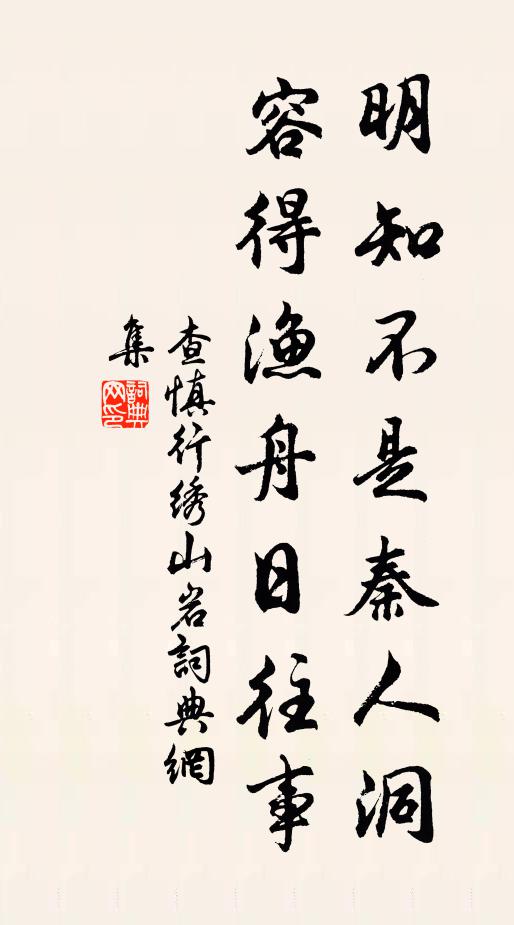 明知不是秦人洞
容得漁舟日往事
查慎行绣山岩詞典網
集
詞典
网印